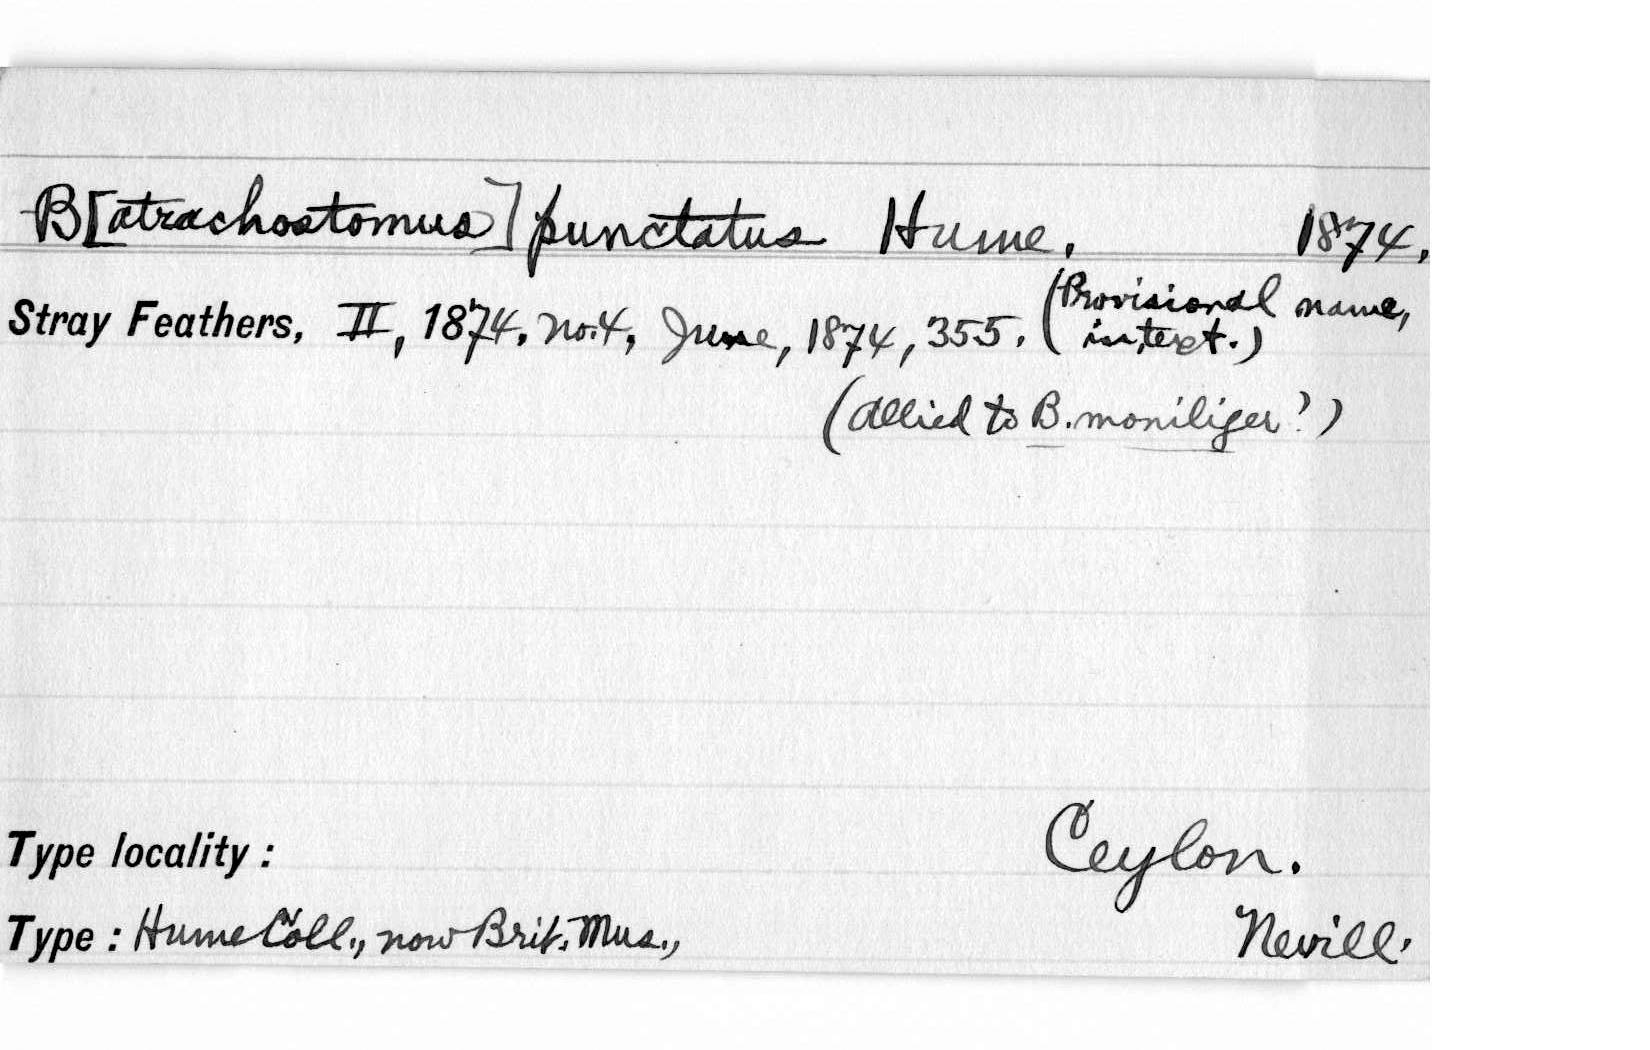 B[atrachostomus] punctatus Hume. 1874.
Stray Feathers, II, 1874, no.4, June, 1874, 355. (Provisional name,
in text.)
(Allied to B. moniliger?)
Type locality: Ceylon.
Type: Hume Coll., now Brit. Mus., Nevill.